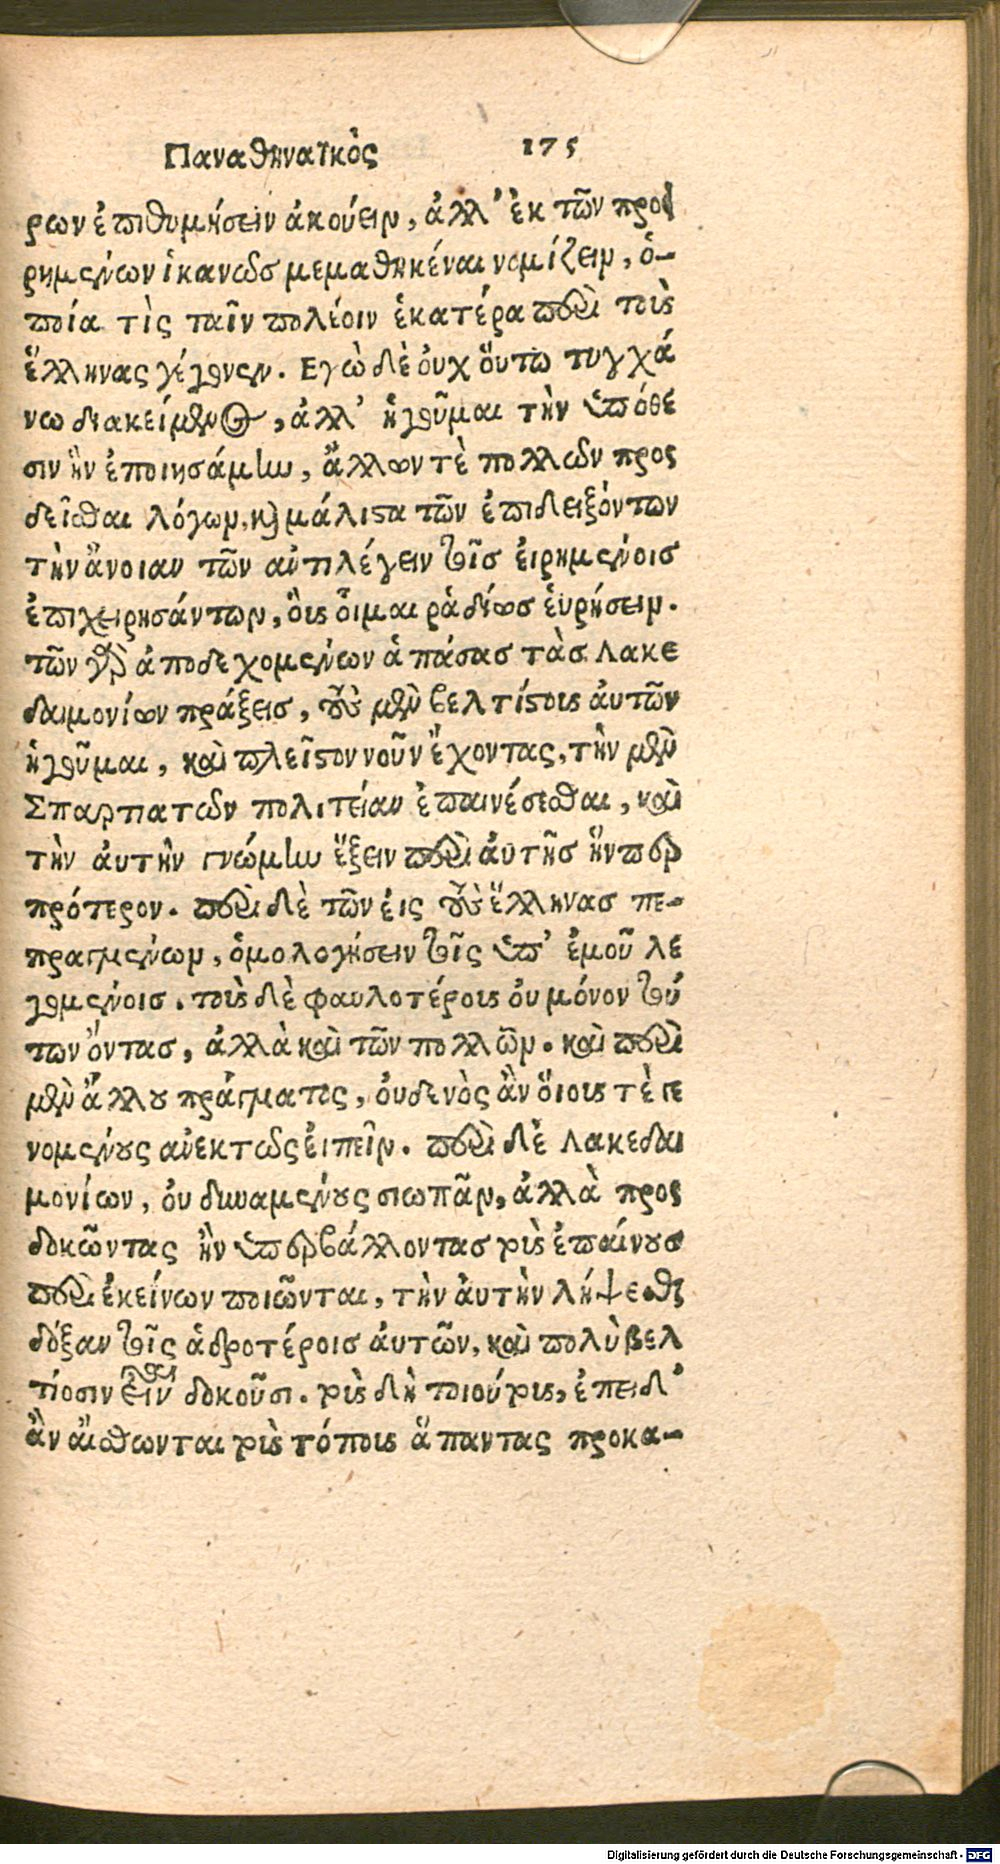 Παναθηναϊκὸς 175
ρων ἐπιθυμήσειν ἀκούειν, ἀλλ' ἐκ τῶν προει
ρημένων ἱκανῶσ μεμαθηκέναι νομίζειν, ὁ-
ποία τὶς ταῖν πολέοιν ἑκατέρα περὶ τοὺς
ἕλληνας γέγονεν. Εγὼ δὲ ὀυχ ὅυτω τυγχά
νω διακείμενος, ἀλλ' ἡγοῦμαι τὴν ὑπόθε
σιν ἣν ἐποιησάμην, ἄλλων τὲ πολλῶν προς
δεῖσθαι λόγων, καὶ μάλιστα τῶν ἐπιδειξόντων
τὴν ἄνοιαν τῶν αὐτιλέγειν τοῖσ ἐιρημένοισ
ἐπιχειρησάντων, ὃυς ὄιμαι ῥᾳδίωσ ἑυρήσειν.
τῶν γὰρ ἀποδεχομένων ἁπάσασ τὰσ Λακε
δαιμονίων πράξεισ, τοὺς μὲν βελτίστους ἀυτῶν
ἡγοῦμαι, καὶ πλεῖστον νοῦν ἔχοντας, τὴν μὲν
Σπαρτιατῶν πολιτείαν ἐπαινέσεσθαι, καὶ
τὴν ἀυτὴν γνώμην ἕξειν περὶ ἀυτῆσ ἥνπερ
πρότερον. περὶ δὲ τῶν ἐις τοὺς ἕλληνασ πε-
πραγμένων, ὁμολογήσειν τοῖς ὑπ' ἐμοῦ λε
γομένοισ. τοὺς δὲ φαυλοτέρους ὀυ μόνον τού
των ὄντασ, ἀλλὰ καὶ τῶν πολλῶν. καὶ περὶ
μὲν ἄλλου πράγματος, ὀυδενὸς ἂν ὅιους τὲ γε
νομένους ἀνεκτῶς ἐιπεῖν. περὶ δὲ Λακεδαι
μονίων, ὀυ δυναμένους σιωπᾶν, ἀλλὰ προς
δοκῶντας ἢν ὑπερβάλλοντασ τοὺς ἐπαίνουσ
περὶ ἐκείνων ποιῶνται, τὴν ἀυτὴν λήψεσθαι
δόξαν τοῖς ἁδροτέροισ ἀυτῶν, καὶ πολὺ βελ
τίοσιν εἶναι δοκοῦσι. τοὺς δὴ τοιούτους, ἐπειδ'
ἂν ἄισθωνται τοὺς τόπους ἅπαντας προκα-
Digitalisierung gefördert durch die Deutsche Forschungsgemeinschaft - DFG